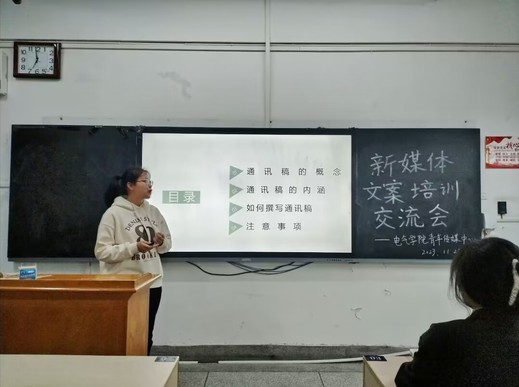 目录
通讯稿的概念
通讯稿的内涵
如何撰写通讯稿
注意事项
新媒体
文案培训
交流会
——电气学院青年传媒中